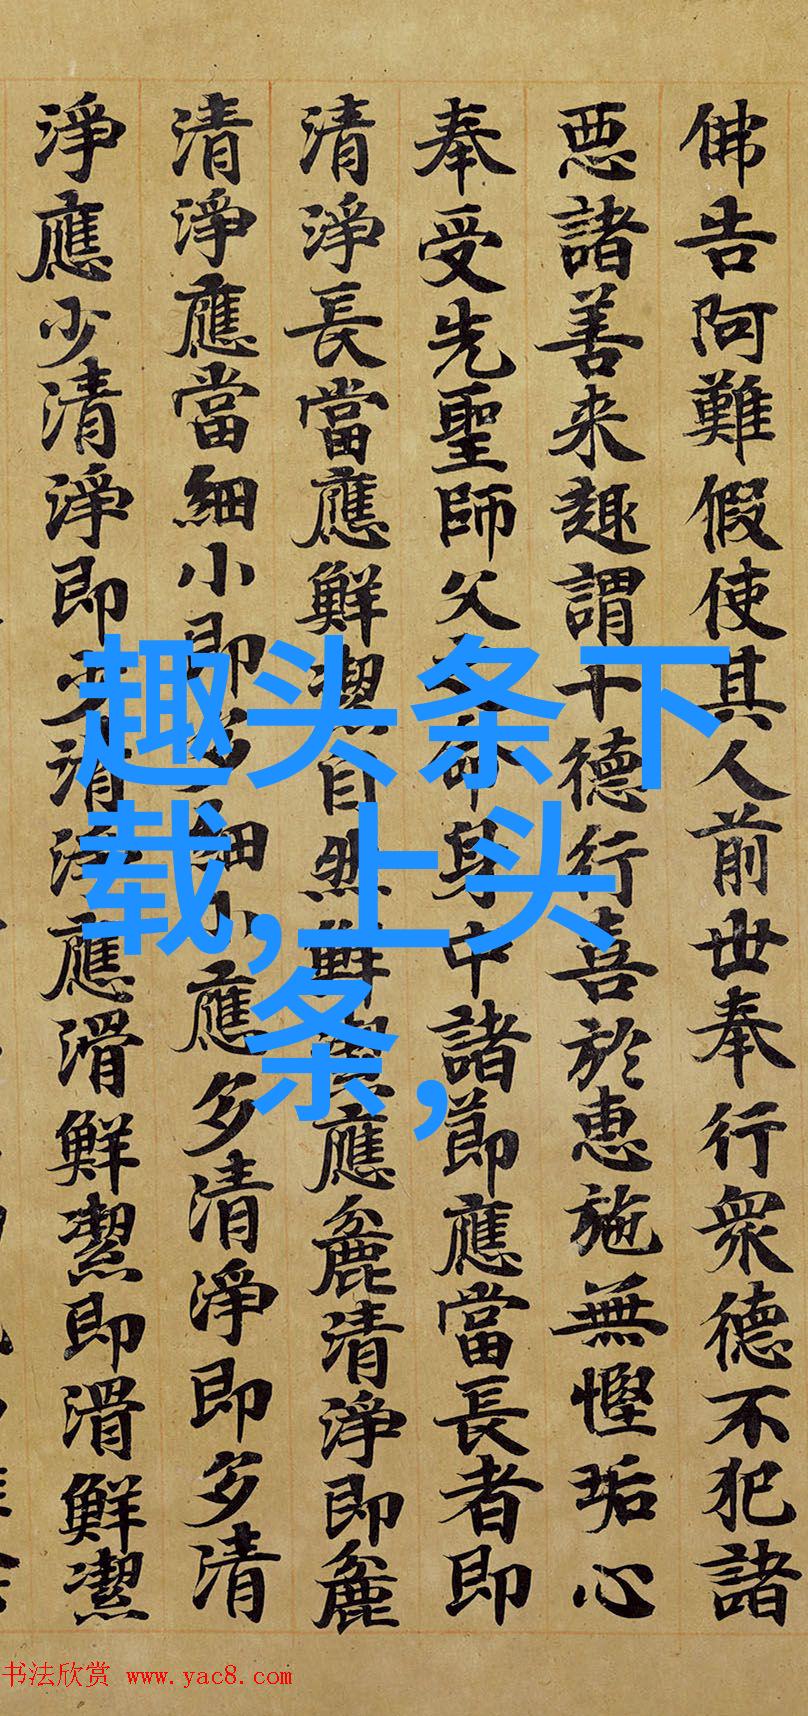 佛告阿難假使其人前世奉行眾德不犯諸
悪諸善来趣謂十德行喜於惠施無慳垢心
奉受先聖師父之命身中諸節應當長者即
清淨長當應鮮潔自然鮮潔應麁清淨即麁
清淨應當細小即多細小應多清淨即多清
淨應少清淨即少清淨應滑鮮潔即滑鮮潔
趣头条下
载,上头
条,
书法欣赏 www.yac8.com